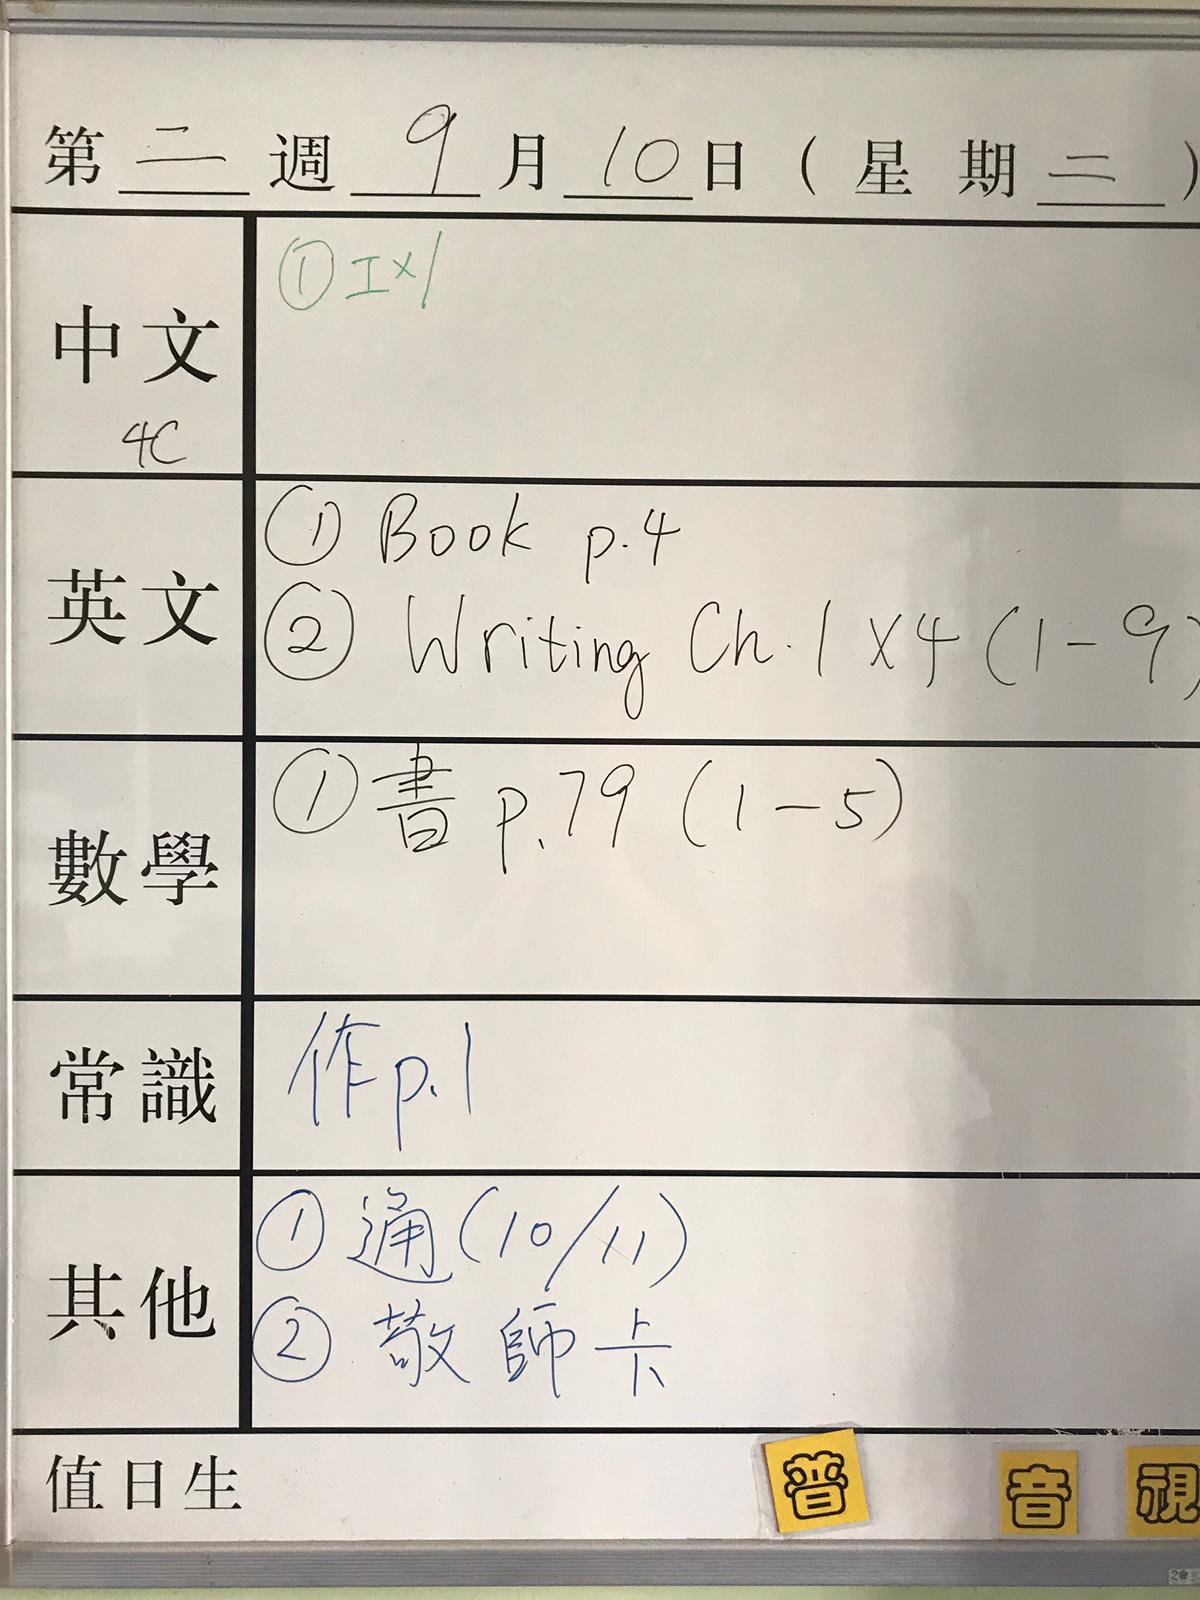 第二週 9月10日(星期二)
中文
4C
① 工×1
英文
① Book p.4
② Writing Ch.1 x4 (1-9)
數學
① 書 p.79 (1-5)
常識
作p.1
其他
① 通(10/11)
② 敬師卡
值日生
普 音 視